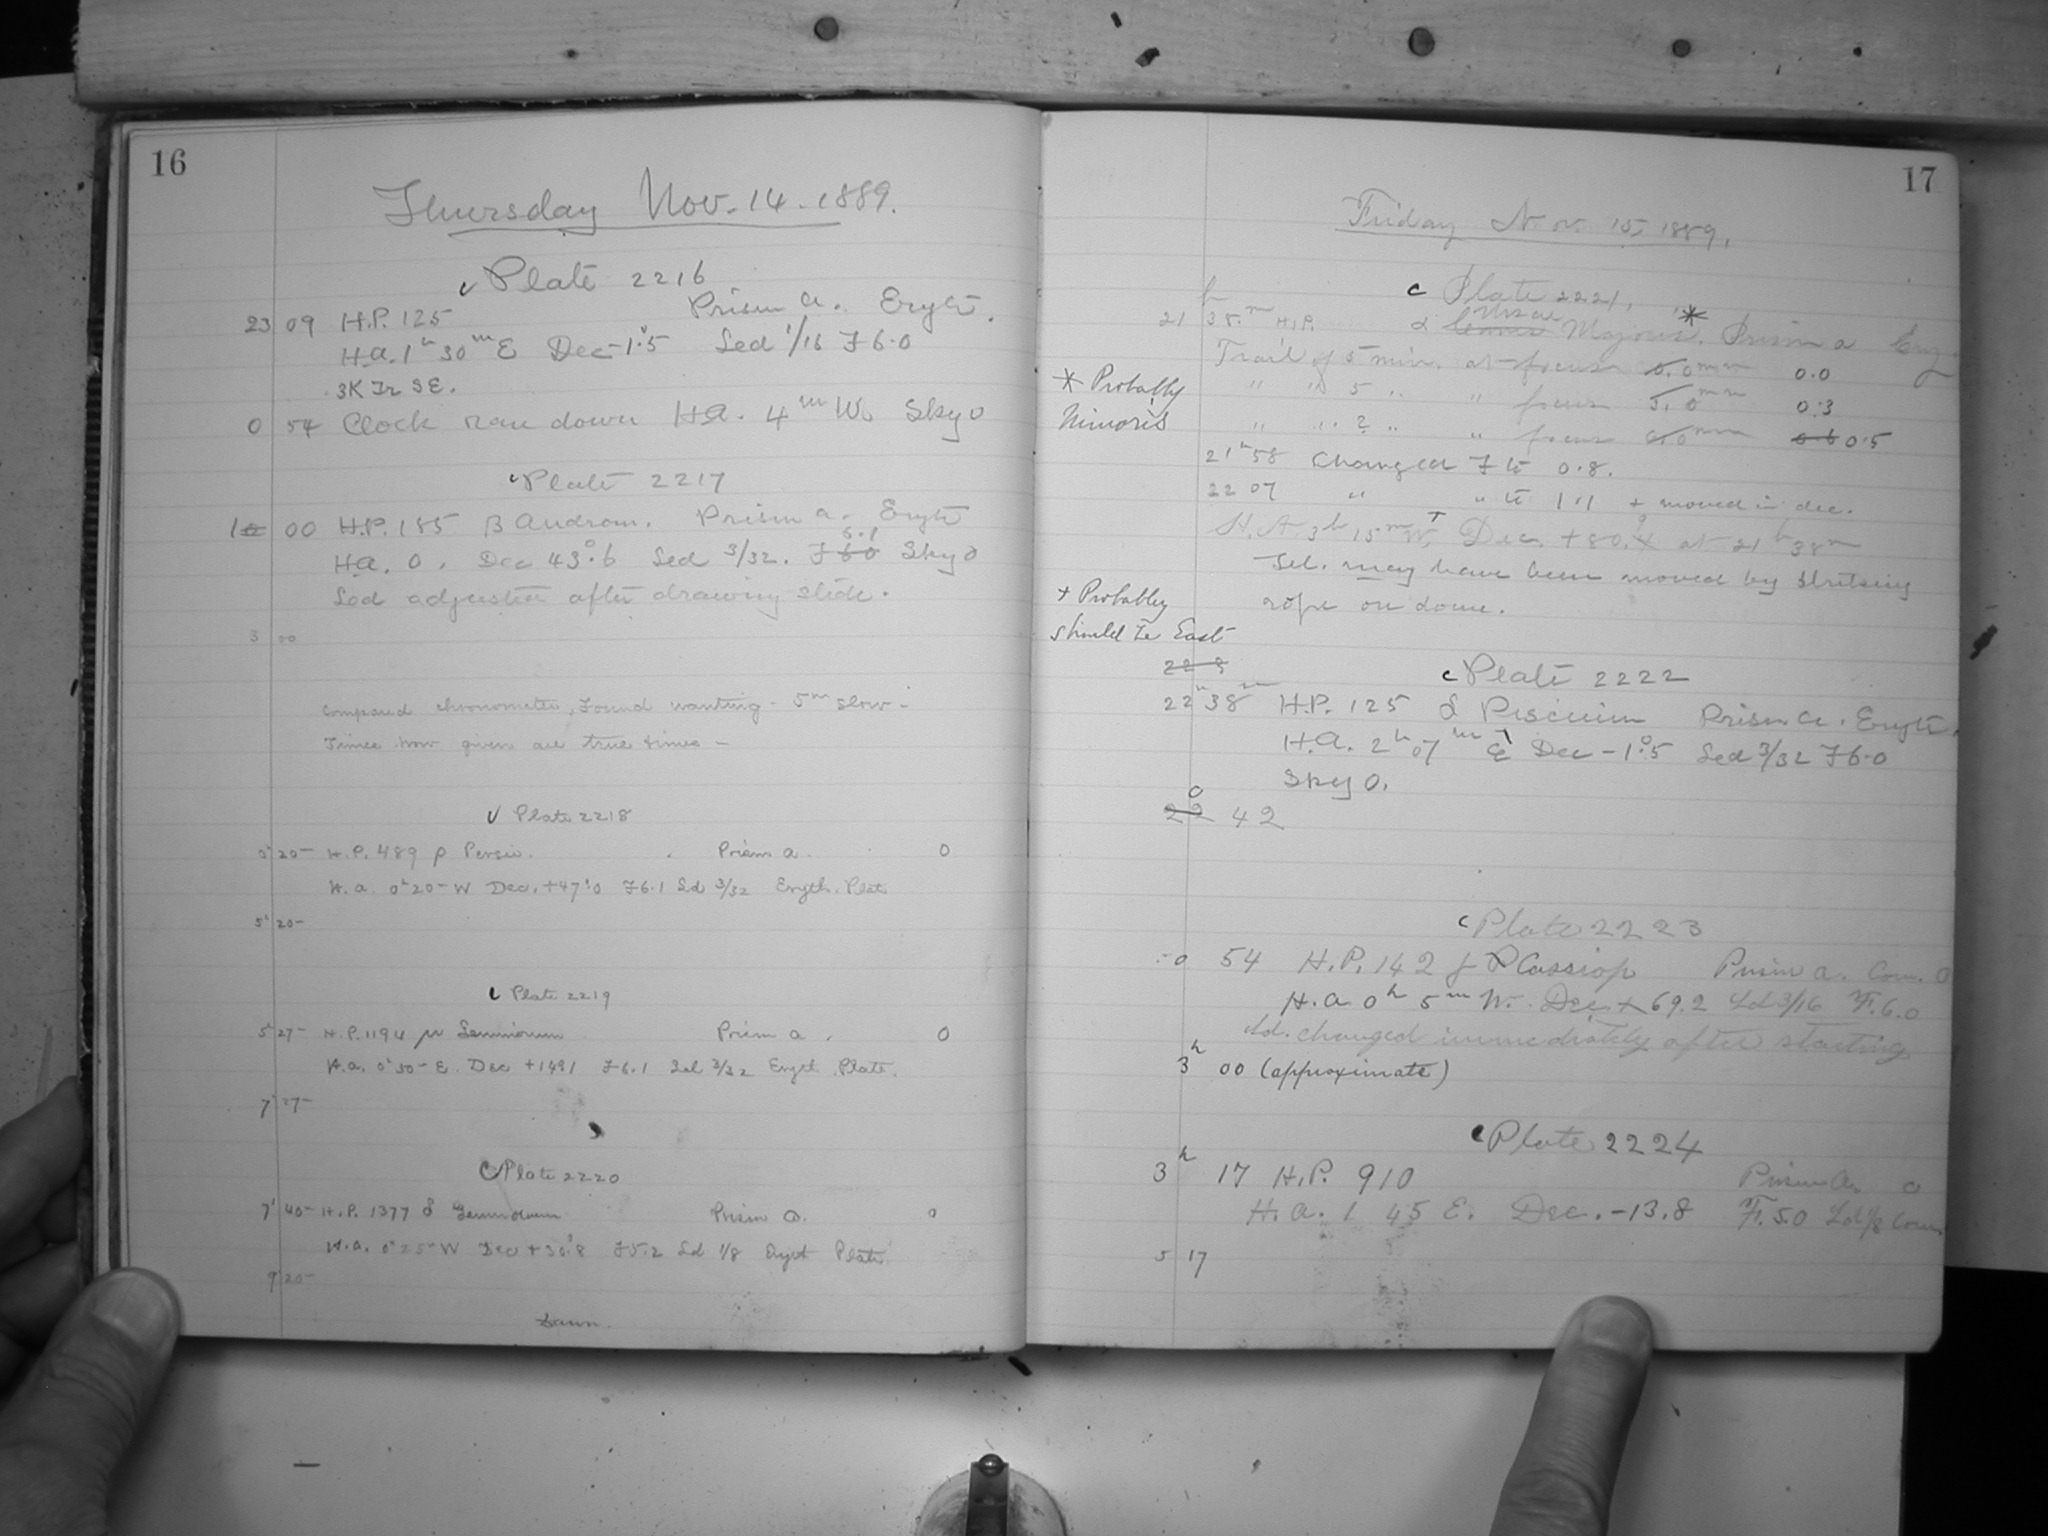 16
Thursday Nov. 14. 1889.
Plate 2216
23 09 H.P. 125 Prism a. Eryth.
H.a. 1h 30m E Dec -1°.5 Sed 1/16 F 6.0
3K Tr SE.
0 54 Clock ran down H.a. 4m W. Sky 0
Plate 2217
1 00 H.P. 155 β Androm. Prism a. Eryth
6.1
H.a. 0. Dec 43°.6 Sed 3/32. F 6.0 Sky 0
Sed adjusted after drawing slide.
3 00
Compared chronometer, Found wanting - 5m slow -
Times now given are true times -
Plate 2218
3 20 H.P. 489 ρ Persei. Prism a. 0
H.a. 0h 20m W Dec. +47°.0 F 6.1 Sd 3/32 Eryth. Plate
5 20
Plate 2219
5 27 H.P. 1194 μ Geminorum Prism a. 0
H.a. 0h 30m E. Dec +1491 F 6.1 Sd 3/32 Eryth. Plate.
7 27
Plate 2220
7 40 H.P. 1377 δ Geminorum Prism a. 0
H.a. 0h 25m W Dec +30°.8 F 5.2 Sd 1/8 Eryth Plate
9 20
Dawn.
17
Friday Nov. 15, 1889.
Plate 2221.
Ursae *
21h 38m H.P. α Majoris. Prism a Ery.
Trail of 5 min. at focus 5.0mm 0.0
" " 5 " " focus 5.0mm 0.3
* Probably
Minoris
" " ? " " focus 6.0mm 0.6 0.5
21h 58 Changed F to 0.8.
22 07 " " to 1.1 + moved in dec.
H.A. 3h 15m W.+ Dec. +80.4 at 21h 38m
Tel. may have been moved by striking
rope on dome.
+ Probably
should be East
22 8
Plate 2222
22h 38m H.P. 125 δ Piscium Prism a. Eryth.
H.a. 2h 07m E Dec -1°.5 Sed 3/32 F 6.0
Sky 0.
0
22 42
Plate 2223
0 54 H.P. 142 Cassiop Prism a. Com. 0
H.a. 0h 5m W. Dec + 69.2 Sd 3/16 F. 6.0
Sd. changed immediately after starting
3h 00 (approximate)
Plate 2224
3h 17 H.P. 910 Prism a. 0
H.a. 1 45 E. Dec. -13.8 F. 5.0 Sd 1/8 Com.
5 17